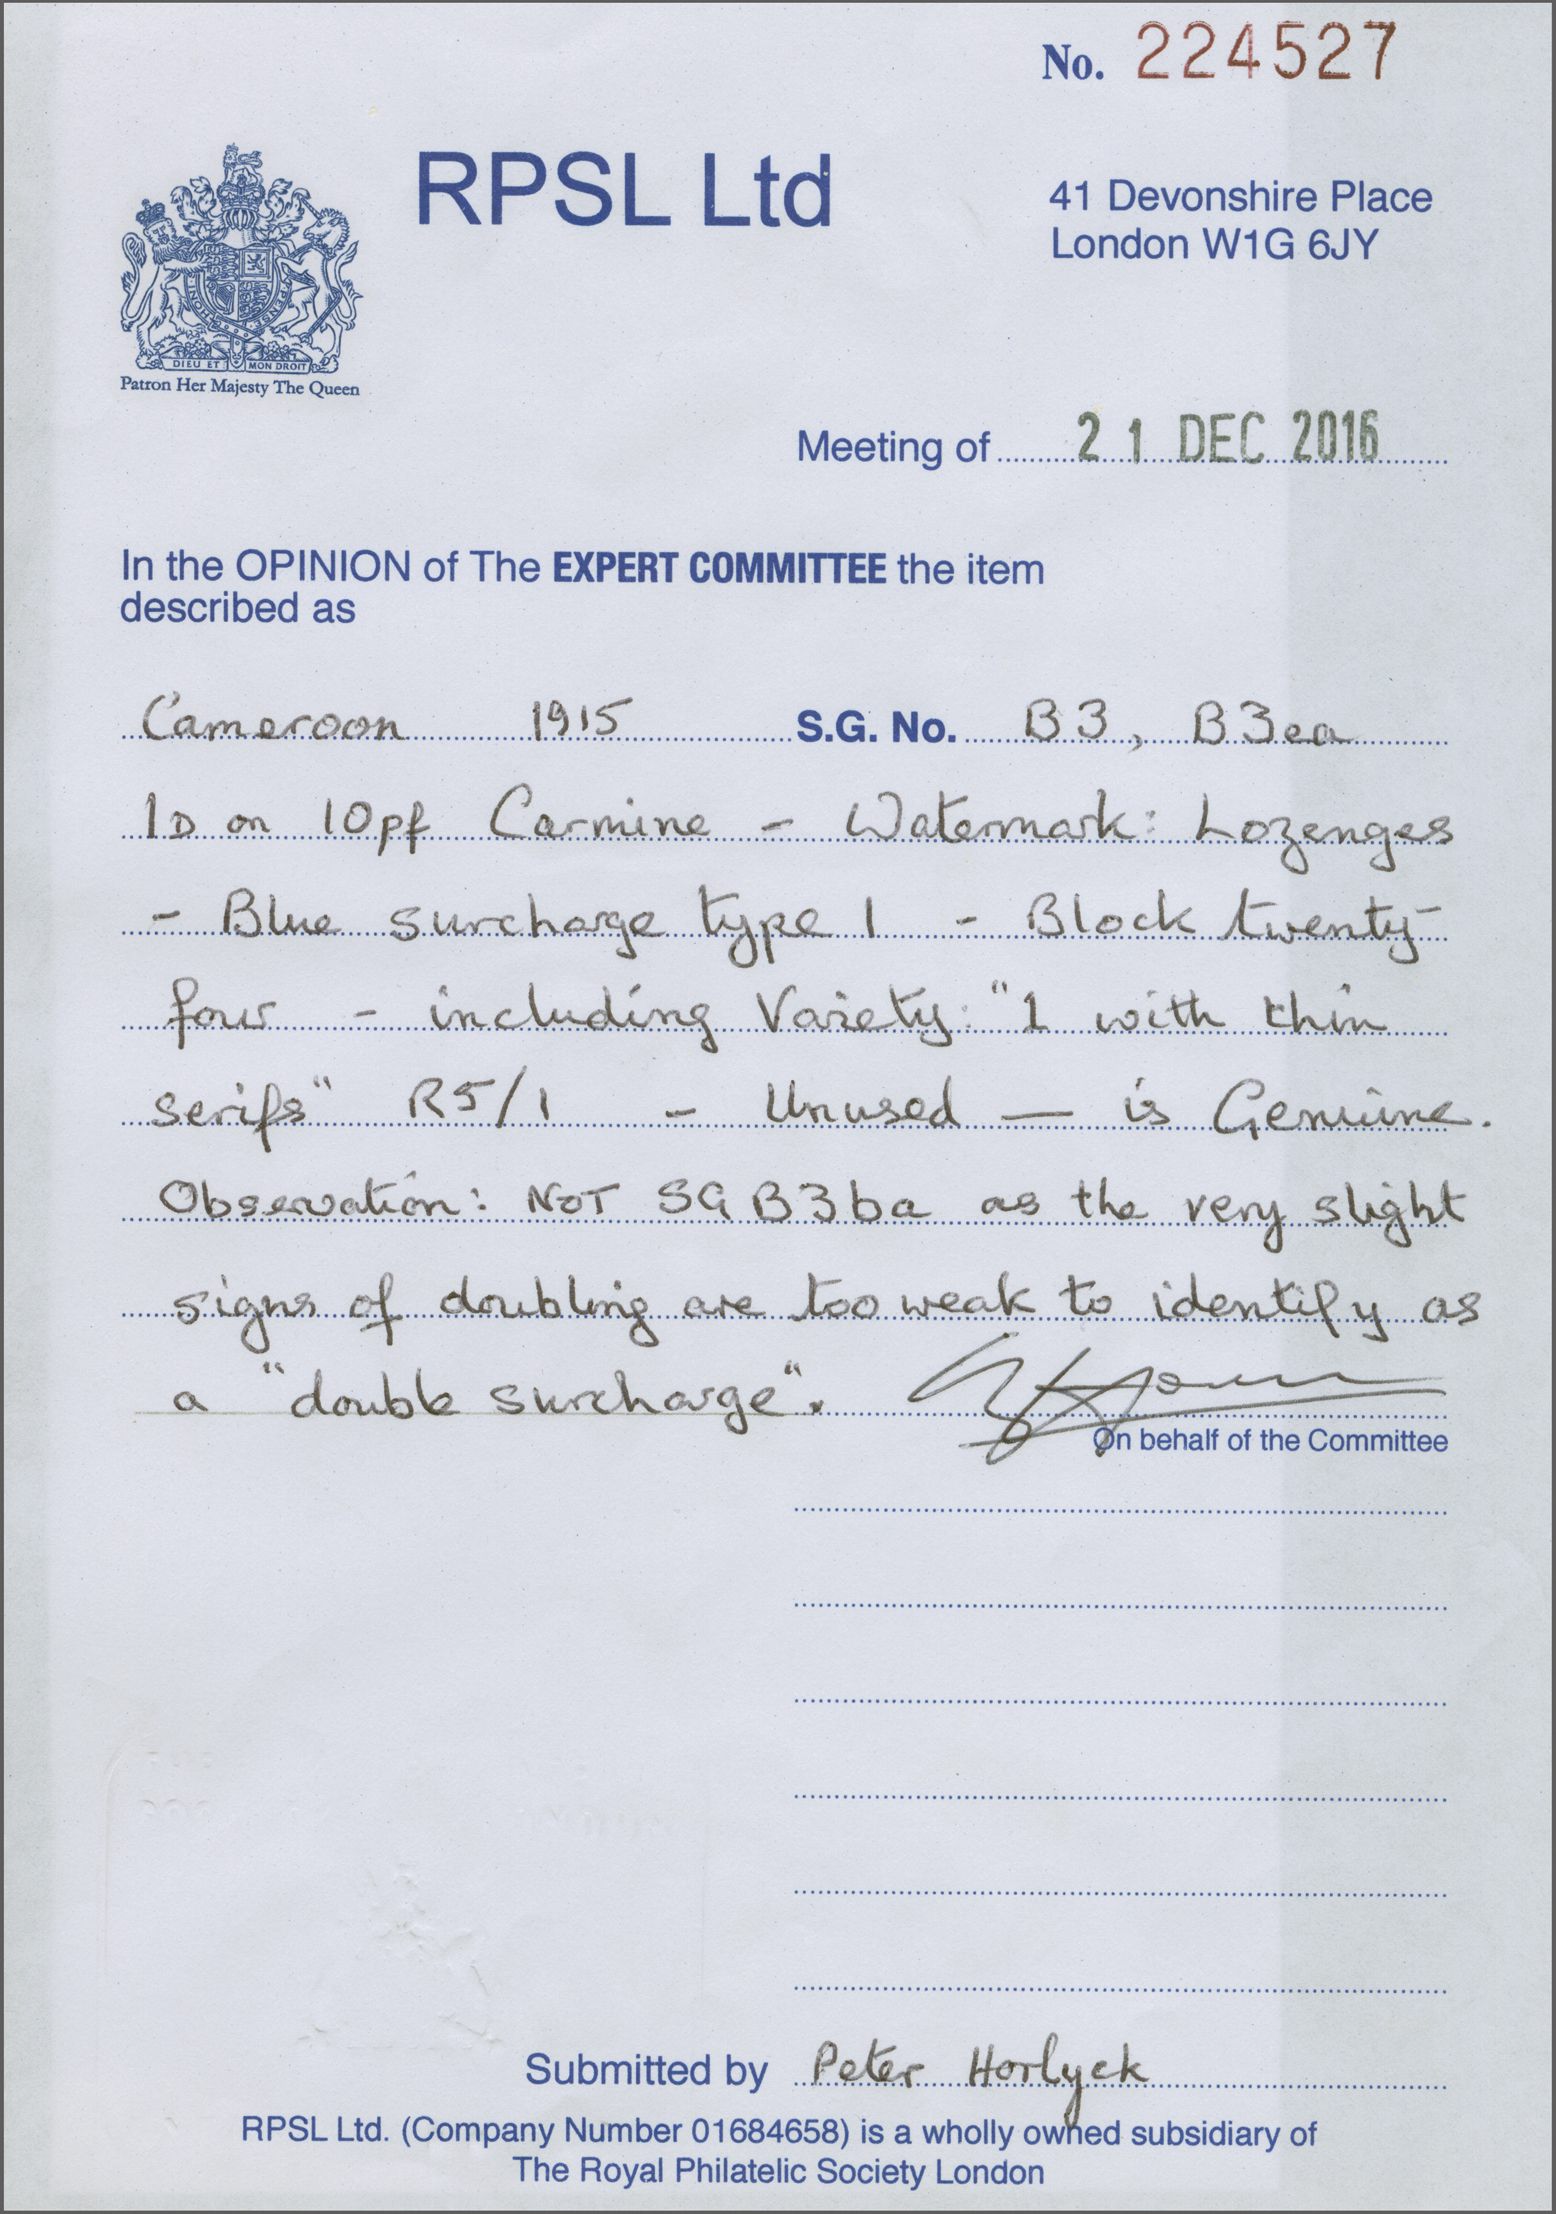 No. 224527
RPSL Ltd
41 Devonshire Place
London W1G 6JY
DIEU ET MON DROIT
Patron Her Majesty The Queen
Meeting of 21 DEC 2016
In the OPINION of The EXPERT COMMITTEE the item
described as
Cameroon 1915 S.G. No. B3, B3ea
1D on 10pf Carmine - Watermark: Lozenges
- Blue surcharge type 1 - Block twenty
four - including Variety: "1 with thin
serifs" R5/1 - Unused — is Genuine.
Observation: NOT SG B3ba as the very slight
signs of doubling are too weak to identify as
a "double surcharge".
On behalf of the Committee
Submitted by Peter Horlyck
RPSL Ltd. (Company Number 01684658) is a wholly owned subsidiary of
The Royal Philatelic Society London